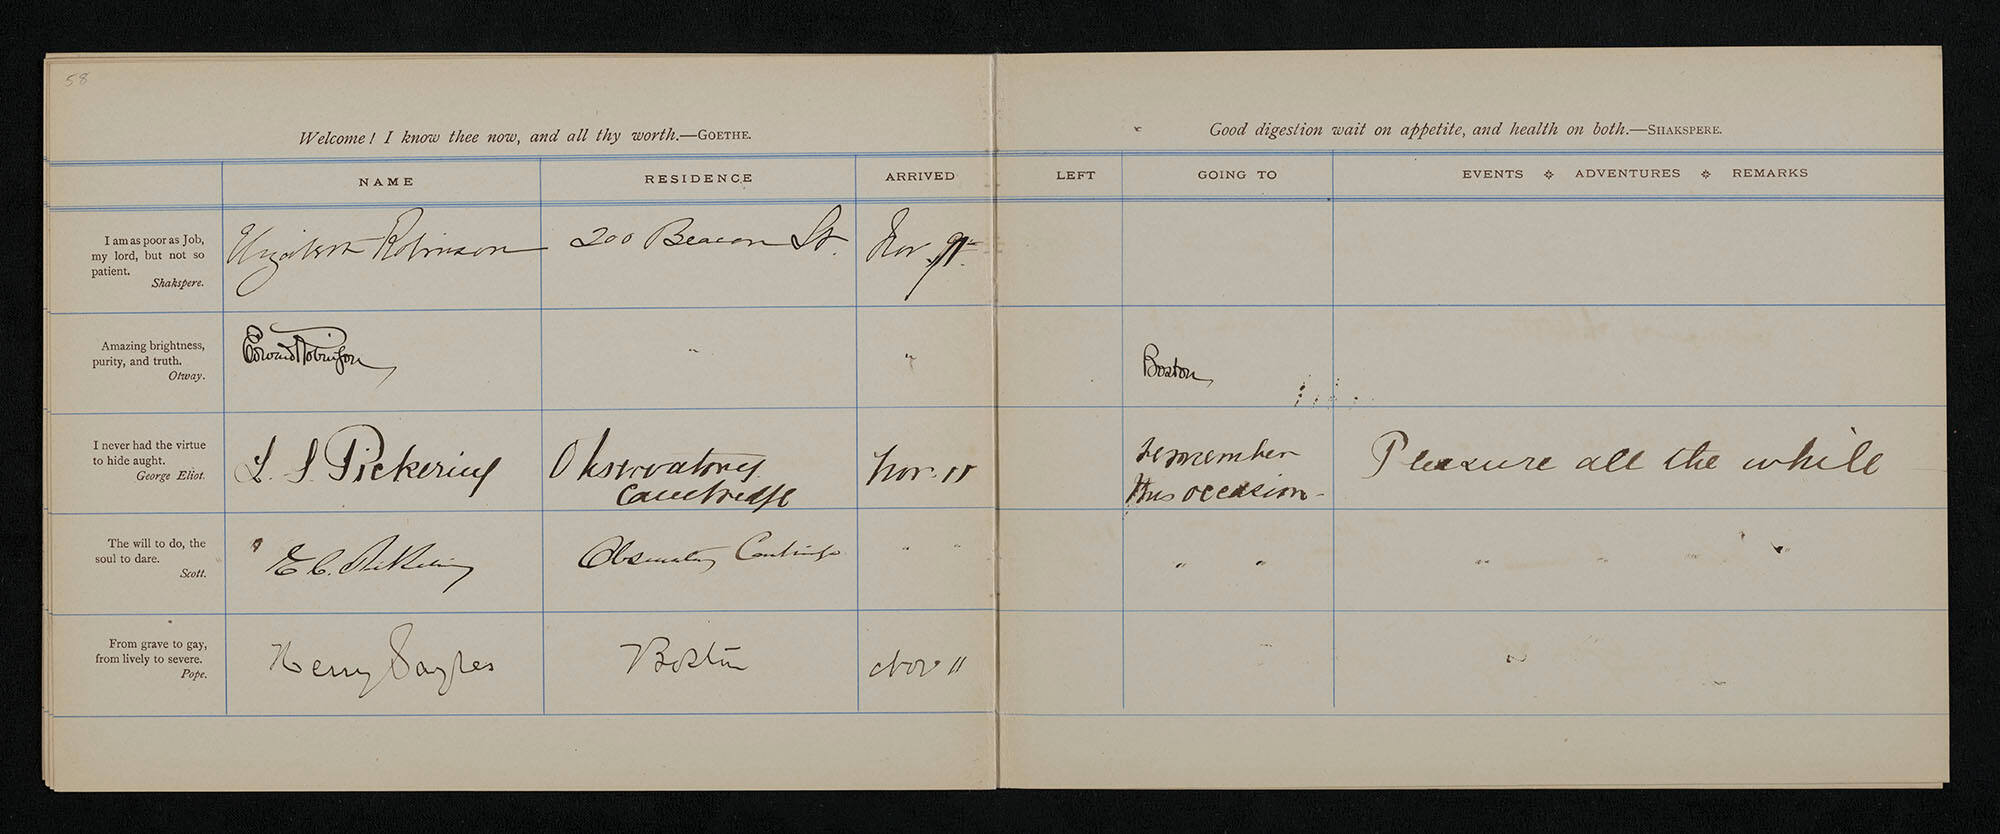 58
Welcome! I know thee now, and all thy worth.—GOETHE.
Good digestion wait on appetite, and health on both.—SHAKSPERE.
NAME RESIDENCE ARRIVED LEFT GOING TO EVENTS ADVENTURES REMARKS
I am as poor as Job,
my lord, but not so
patient.
Shakspere.
Elizabeth Robinson 200 Beacon St. Nov.
Amazing brightness,
purity, and truth.
Otway.
Edward Robinson " " Boston
I never had the virtue
to hide aught.
George Eliot.
L. S. Pickering Observatory Nov. 11 remember Pleasure all the while
Cambridge this occasion
The will to do, the
soul to dare.
Scott.
" E. C. Pickering Observatory Cambridge " " " " " " " "
From grave to gay,
from lively to severe.
Pope.
Henry Sayles Boston Nov 11